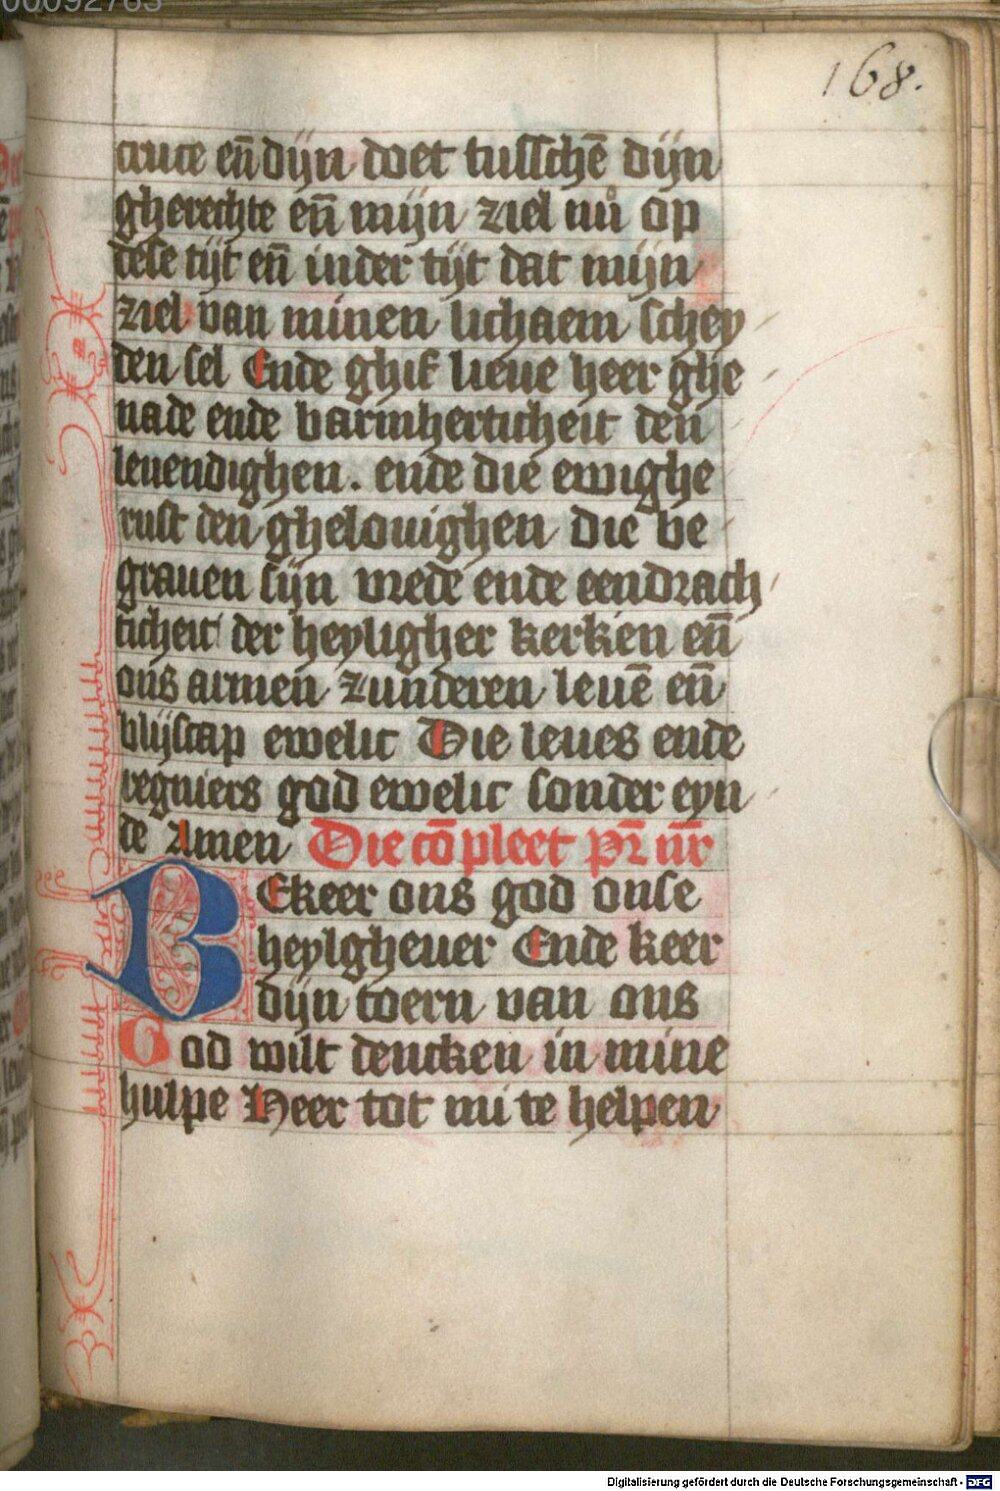 00092763
168.
cruce en̄ dijn doet tusschē dijn
gherechte en̄ mijn ziel nů op
dese tijt en̄ inder tijt dat mijn
ziel van minen lichaem schey
den sel Ende ghif lieue heer ghe
nade ende barmherticheit den
leuendighen. ende die ewighe
rust den ghelouighen die be
grauen sijn vrede ende eendrach
ticheit der heyligher kerken en̄
ons armen zunderen leuē en̄
blijscap ewelic Die leues ende
regniers god ewelic sonder eyn
de Amen Die cōpleet pr̄ nr̄
BEkeer ons god onse
heylgheuer Ende keer
dijn toern van ons
God wilt dencken in mine
hulpe Heer tot mi te helpen
Digitalisierung gefördert durch die Deutsche Forschungsgemeinschaft - DFG